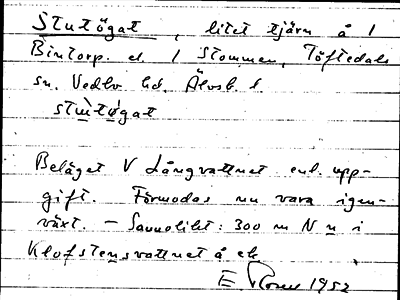 Stutögat, litet tjärn å 1
Bintorp. el. 1 Stommen, Töftedals
sn. Vedbo hd. Älvsb. l.
stùtǿgat
Beläget V Långvattnet enl. upp-
gift. Förmodas nu vara igen-
växt. – Sannolikt: 300 m N n i
Klofstensvattnet å ek
E 1952